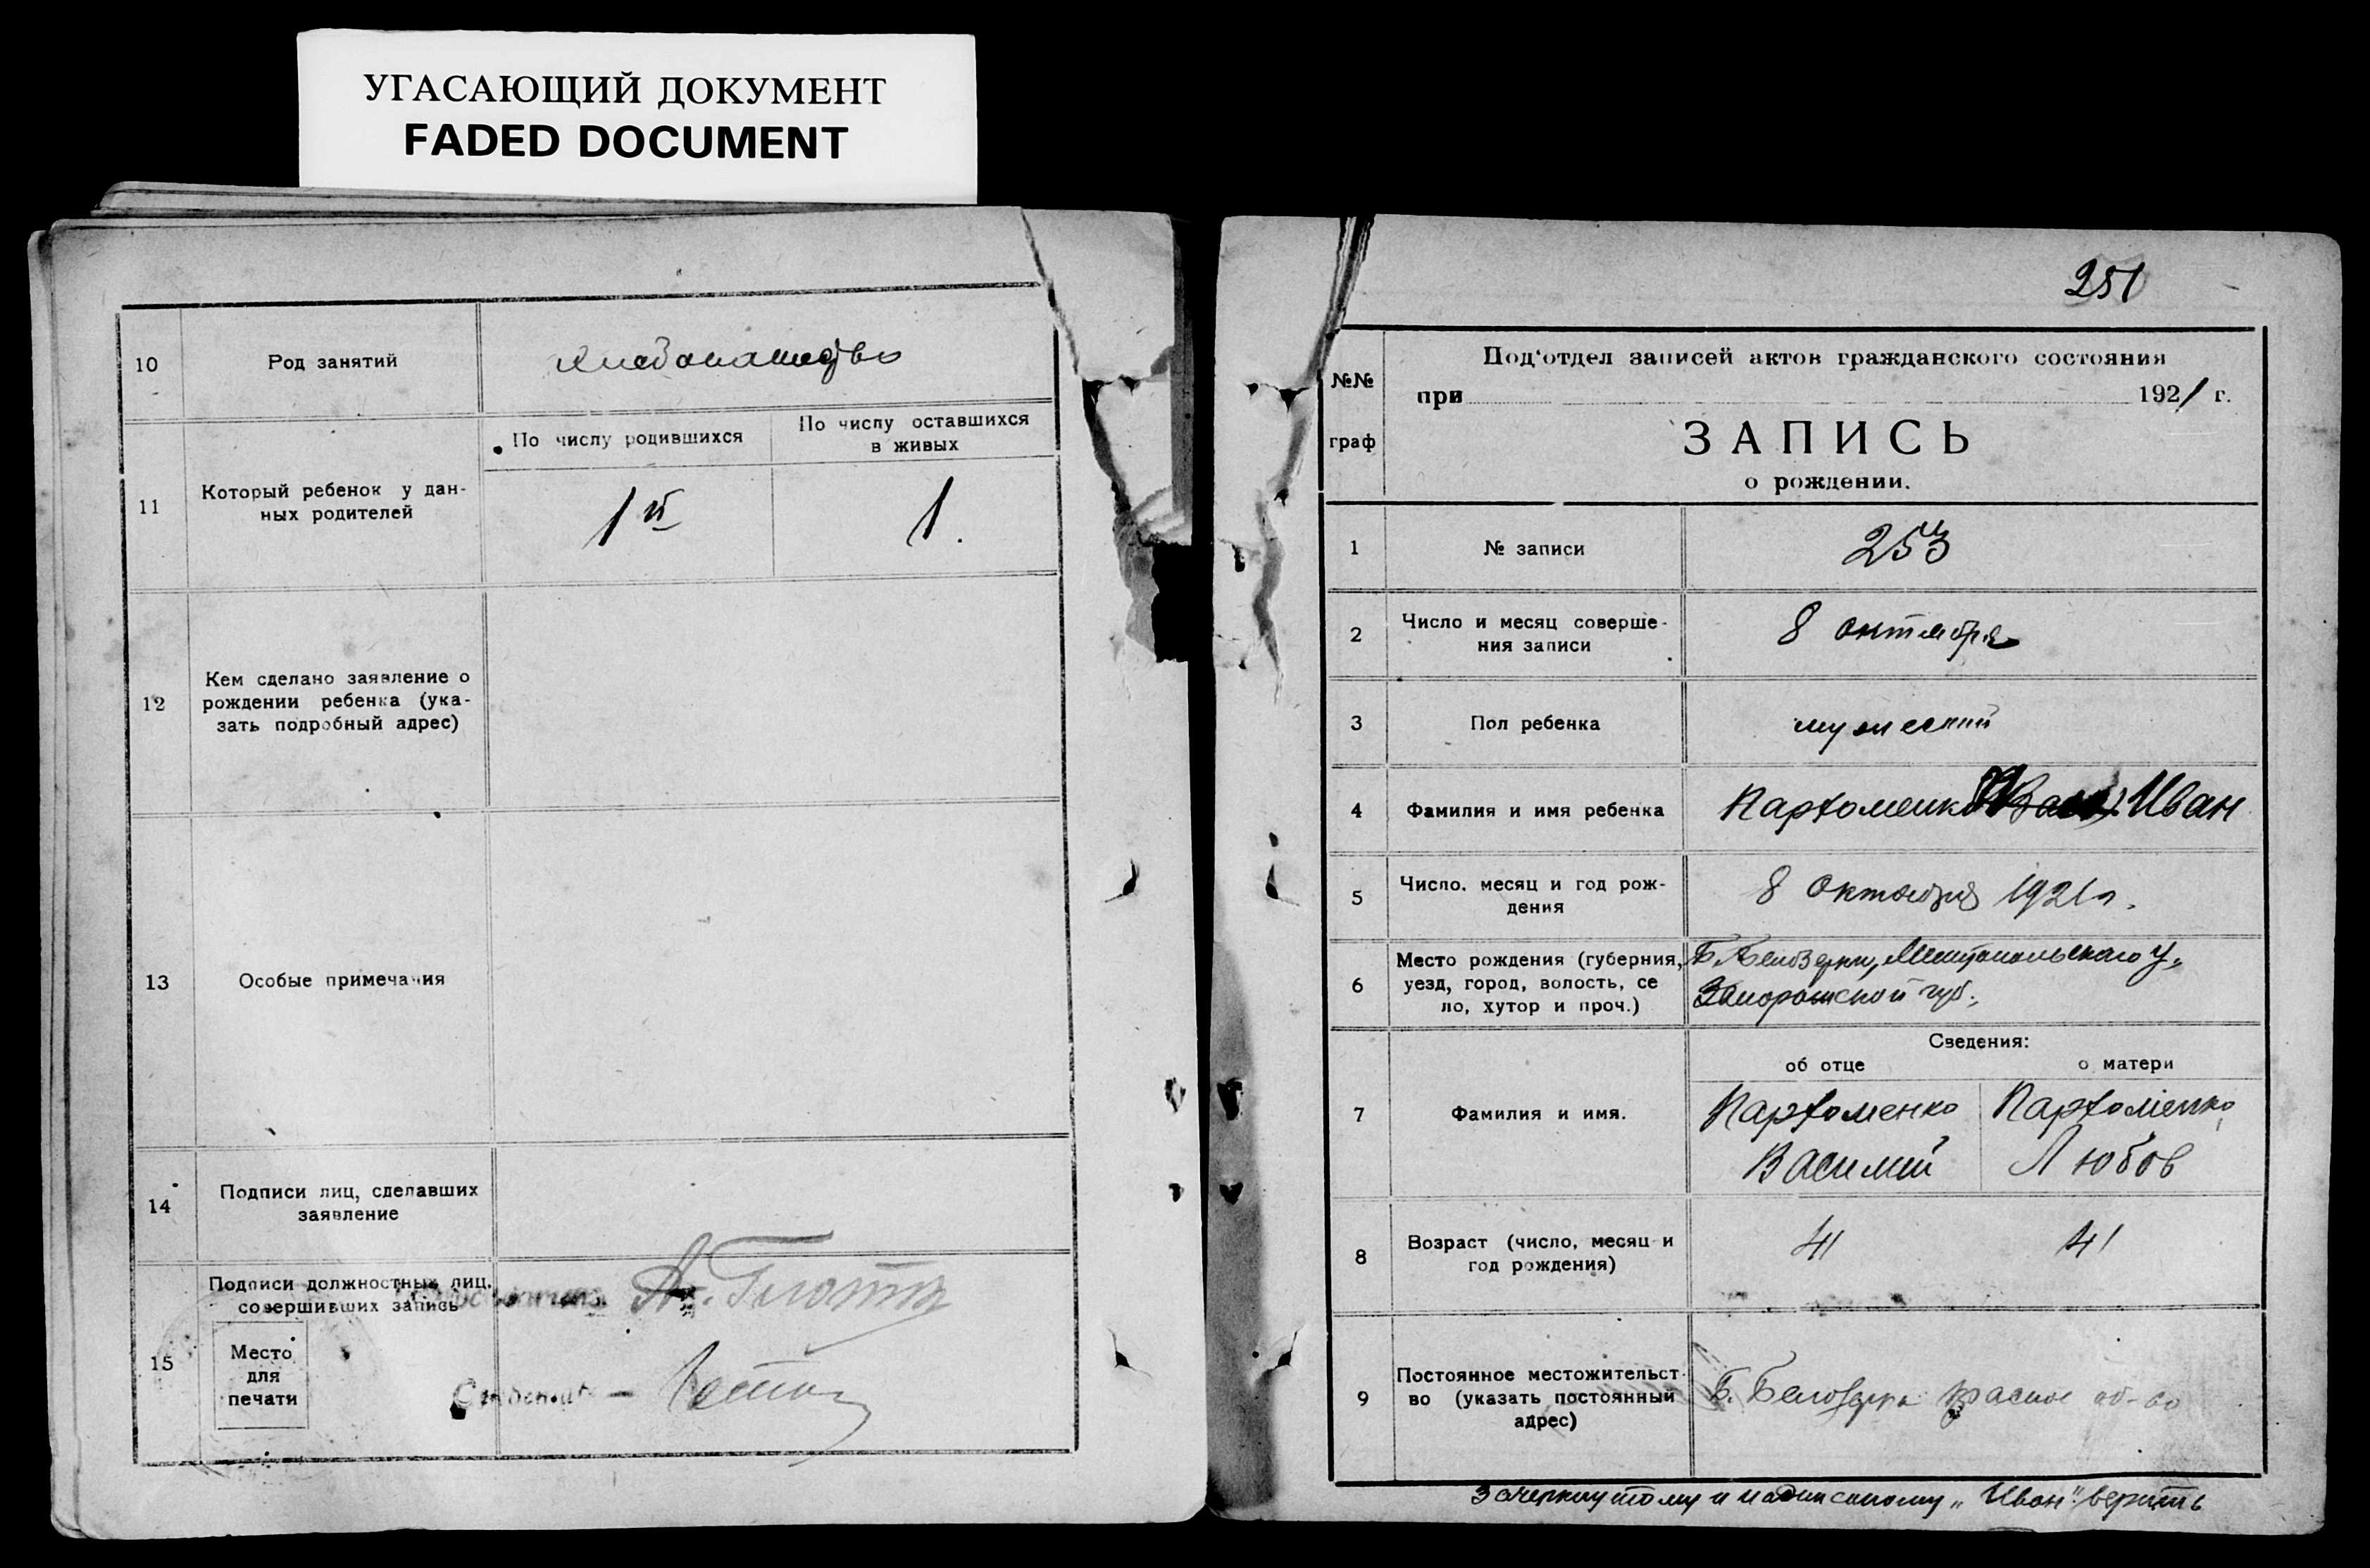 УГАСАЮЩИЙ ДОКУМЕНТ
FADED DOCUMENT
10
Род занятий
11
Который ребенок у дан-
ных родителей
По числу родившихся
По числу оставшихся
в живых
1й
1.
12
Кем сделано заявление о
рождении ребенка (ука-
зать подробный адрес)
13
Особые примечания
14
Подписи лиц, сделавших
заявление
15
Подписи должностных лиц,
совершивших запись
Место
для
печати
251
№№
граф
Под'отдел записей актов гражданского состояния
при 1921 г.
ЗАПИСЬ
о рождении.
1
№ записи
253
2
Число и месяц соверше-
ния записи
8 октября
3
Пол ребенка
мужеский
4
Фамилия и имя ребенка
Пархоменко Иван
5
Число, месяц и год рож-
дения
8 Октября 1921 г.
6
Место рождения (губерния,
уезд, город, волость, се
ло, хутор и проч.)
Б. Белозерки, Мелитопольского у.
Запорожской губ.
Сведения:
об отце
о матери
7
Фамилия и имя.
Пархоменко
Василий
Пархоменко
Любов
8
Возраст (число, месяц и
год рождения)
41
41
9
Постоянное местожительст-
во (указать постоянный
адрес)
Б. Белозерка Красное об-во
Зачеркнутому и надписаному „Иван" верить